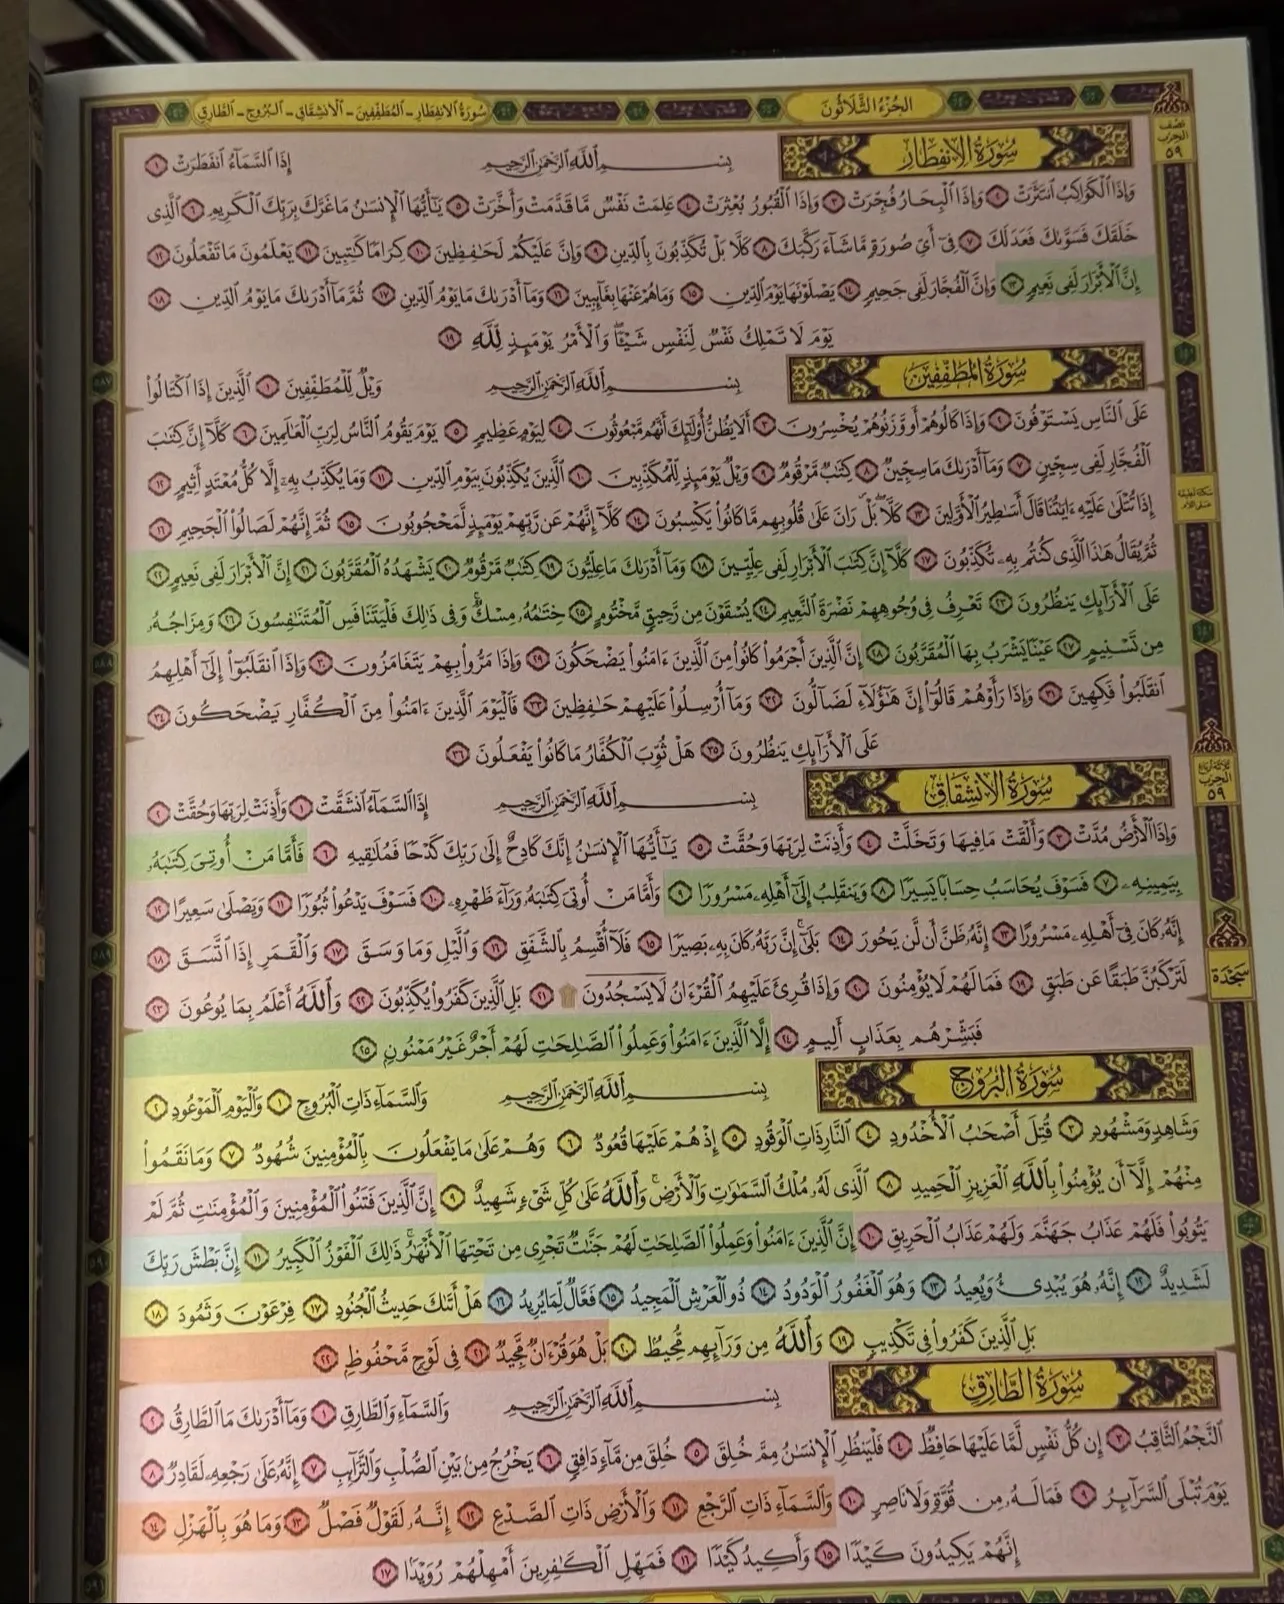 سُورَةُ الانفِطَارِ - المُطَفِّفِينَ - الانشِقَاقِ - البُرُوجِ - الطَّارِقِ
الجُزْءُ الثَّلَاثُونَ
نصف الحزب ٥٩
سُورَةُ الانفِطَارِ
بِسْمِ اللَّهِ الرَّحْمَٰنِ الرَّحِيمِ إِذَا السَّمَاءُ انفَطَرَتْ ١
وَإِذَا الْكَوَاكِبُ انتَثَرَتْ ٢ وَإِذَا الْبِحَارُ فُجِّرَتْ ٣ وَإِذَا الْقُبُورُ بُعْثِرَتْ ٤ عَلِمَتْ نَفْسٌ مَّا قَدَّمَتْ وَأَخَّرَتْ ٥ يَٰأَيُّهَا الْإِنسَٰنُ مَا غَرَّكَ بِرَبِّكَ الْكَرِيمِ ٦ الَّذِى
خَلَقَكَ فَسَوَّىٰكَ فَعَدَلَكَ ٧ فِى أَىِّ صُورَةٍ مَّا شَاءَ رَكَّبَكَ ٨ كَلَّا بَلْ تُكَذِّبُونَ بِالدِّينِ ٩ وَإِنَّ عَلَيْكُمْ لَحَٰفِظِينَ ١٠ كِرَامًا كَٰتِبِينَ ١١ يَعْلَمُونَ مَا تَفْعَلُونَ ١٢
إِنَّ الْأَبْرَارَ لَفِى نَعِيمٍ ١٣ وَإِنَّ الْفُجَّارَ لَفِى جَحِيمٍ ١٤ يَصْلَوْنَهَا يَوْمَ الدِّينِ ١٥ وَمَا هُمْ عَنْهَا بِغَائِبِينَ ١٦ وَمَا أَدْرَىٰكَ مَا يَوْمُ الدِّينِ ١٧ ثُمَّ مَا أَدْرَىٰكَ مَا يَوْمُ الدِّينِ ١٨
يَوْمَ لَا تَمْلِكُ نَفْسٌ لِّنَفْسٍ شَيْـًٔا وَالْأَمْرُ يَوْمَئِذٍ لِّلَّهِ ١٩
سُورَةُ المُطَفِّفِينَ
بِسْمِ اللَّهِ الرَّحْمَٰنِ الرَّحِيمِ وَيْلٌ لِّلْمُطَفِّفِينَ ١ الَّذِينَ إِذَا اكْتَالُوا۟
عَلَى النَّاسِ يَسْتَوْفُونَ ٢ وَإِذَا كَالُوهُمْ أَو وَّزَنُوهُمْ يُخْسِرُونَ ٣ أَلَا يَظُنُّ أُو۟لَٰئِكَ أَنَّهُم مَّبْعُوثُونَ ٤ لِيَوْمٍ عَظِيمٍ ٥ يَوْمَ يَقُومُ النَّاسُ لِرَبِّ الْعَٰلَمِينَ ٦ كَلَّا إِنَّ كِتَٰبَ
الْفُجَّارِ لَفِى سِجِّينٍ ٧ وَمَا أَدْرَىٰكَ مَا سِجِّينٌ ٨ كِتَٰبٌ مَّرْقُومٌ ٩ وَيْلٌ يَوْمَئِذٍ لِّلْمُكَذِّبِينَ ١٠ الَّذِينَ يُكَذِّبُونَ بِيَوْمِ الدِّينِ ١١ وَمَا يُكَذِّبُ بِهِ إِلَّا كُلُّ مُعْتَدٍ أَثِيمٍ ١٢
إِذَا تُتْلَىٰ عَلَيْهِ ءَايَٰتُنَا قَالَ أَسَٰطِيرُ الْأَوَّلِينَ ١٣ كَلَّا بَلْ رَانَ عَلَىٰ قُلُوبِهِم مَّا كَانُوا۟ يَكْسِبُونَ ١٤ كَلَّا إِنَّهُمْ عَن رَّبِّهِمْ يَوْمَئِذٍ لَّمَحْجُوبُونَ ١٥ ثُمَّ إِنَّهُمْ لَصَالُوا۟ الْجَحِيمِ ١٦
سكتة لطيفة على اللام
ثُمَّ يُقَالُ هَٰذَا الَّذِى كُنتُم بِهِ تُكَذِّبُونَ ١٧ كَلَّا إِنَّ كِتَٰبَ الْأَبْرَارِ لَفِى عِلِّيِّينَ ١٨ وَمَا أَدْرَىٰكَ مَا عِلِّيُّونَ ١٩ كِتَٰبٌ مَّرْقُومٌ ٢٠ يَشْهَدُهُ الْمُقَرَّبُونَ ٢١ إِنَّ الْأَبْرَارَ لَفِى نَعِيمٍ ٢٢
عَلَى الْأَرَائِكِ يَنظُرُونَ ٢٣ تَعْرِفُ فِى وُجُوهِهِمْ نَضْرَةَ النَّعِيمِ ٢٤ يُسْقَوْنَ مِن رَّحِيقٍ مَّخْتُومٍ ٢٥ خِتَٰمُهُ مِسْكٌ وَفِى ذَٰلِكَ فَلْيَتَنَافَسِ الْمُتَنَٰفِسُونَ ٢٦ وَمِزَاجُهُ
مِن تَسْنِيمٍ ٢٧ عَيْنًا يَشْرَبُ بِهَا الْمُقَرَّبُونَ ٢٨ إِنَّ الَّذِينَ أَجْرَمُوا۟ كَانُوا۟ مِنَ الَّذِينَ ءَامَنُوا۟ يَضْحَكُونَ ٢٩ وَإِذَا مَرُّوا۟ بِهِمْ يَتَغَامَزُونَ ٣٠ وَإِذَا انقَلَبُوا۟ إِلَىٰ أَهْلِهِمُ
انقَلَبُوا۟ فَكِهِينَ ٣١ وَإِذَا رَأَوْهُمْ قَالُوا۟ إِنَّ هَٰؤُلَاءِ لَضَالُّونَ ٣٢ وَمَا أُرْسِلُوا۟ عَلَيْهِمْ حَٰفِظِينَ ٣٣ فَالْيَوْمَ الَّذِينَ ءَامَنُوا۟ مِنَ الْكُفَّارِ يَضْحَكُونَ ٣٤
عَلَى الْأَرَائِكِ يَنظُرُونَ ٣٥ هَلْ ثُوِّبَ الْكُفَّارُ مَا كَانُوا۟ يَفْعَلُونَ ٣٦
ثلاثة أرباع الحزب ٥٩
سُورَةُ الانشِقَاقِ
بِسْمِ اللَّهِ الرَّحْمَٰنِ الرَّحِيمِ إِذَا السَّمَاءُ انشَقَّتْ ١ وَأَذِنَتْ لِرَبِّهَا وَحُقَّتْ ٢
وَإِذَا الْأَرْضُ مُدَّتْ ٣ وَأَلْقَتْ مَا فِيهَا وَتَخَلَّتْ ٤ وَأَذِنَتْ لِرَبِّهَا وَحُقَّتْ ٥ يَٰأَيُّهَا الْإِنسَٰنُ إِنَّكَ كَادِحٌ إِلَىٰ رَبِّكَ كَدْحًا فَمُلَٰقِيهِ ٦ فَأَمَّا مَنْ أُوتِىَ كِتَٰبَهُ
بِيَمِينِهِ ٧ فَسَوْفَ يُحَاسَبُ حِسَابًا يَسِيرًا ٨ وَيَنقَلِبُ إِلَىٰ أَهْلِهِ مَسْرُورًا ٩ وَأَمَّا مَنْ أُوتِىَ كِتَٰبَهُ وَرَاءَ ظَهْرِهِ ١٠ فَسَوْفَ يَدْعُوا۟ ثُبُورًا ١١ وَيَصْلَىٰ سَعِيرًا ١٢
إِنَّهُ كَانَ فِى أَهْلِهِ مَسْرُورًا ١٣ إِنَّهُ ظَنَّ أَن لَّن يَحُورَ ١٤ بَلَىٰ إِنَّ رَبَّهُ كَانَ بِهِ بَصِيرًا ١٥ فَلَا أُقْسِمُ بِالشَّفَقِ ١٦ وَالَّيْلِ وَمَا وَسَقَ ١٧ وَالْقَمَرِ إِذَا اتَّسَقَ ١٨
سَجْدَة
لَتَرْكَبُنَّ طَبَقًا عَن طَبَقٍ ١٩ فَمَا لَهُمْ لَا يُؤْمِنُونَ ٢٠ وَإِذَا قُرِئَ عَلَيْهِمُ الْقُرْءَانُ لَا يَسْجُدُونَ ۩ ٢١ بَلِ الَّذِينَ كَفَرُوا۟ يُكَذِّبُونَ ٢٢ وَاللَّهُ أَعْلَمُ بِمَا يُوعُونَ ٢٣
فَبَشِّرْهُم بِعَذَابٍ أَلِيمٍ ٢٤ إِلَّا الَّذِينَ ءَامَنُوا۟ وَعَمِلُوا۟ الصَّٰلِحَٰتِ لَهُمْ أَجْرٌ غَيْرُ مَمْنُونٍ ٢٥
سُورَةُ البُرُوجِ
بِسْمِ اللَّهِ الرَّحْمَٰنِ الرَّحِيمِ وَالسَّمَاءِ ذَاتِ الْبُرُوجِ ١ وَالْيَوْمِ الْمَوْعُودِ ٢
وَشَاهِدٍ وَمَشْهُودٍ ٣ قُتِلَ أَصْحَٰبُ الْأُخْدُودِ ٤ النَّارِ ذَاتِ الْوَقُودِ ٥ إِذْ هُمْ عَلَيْهَا قُعُودٌ ٦ وَهُمْ عَلَىٰ مَا يَفْعَلُونَ بِالْمُؤْمِنِينَ شُهُودٌ ٧ وَمَا نَقَمُوا۟
مِنْهُمْ إِلَّا أَن يُؤْمِنُوا۟ بِاللَّهِ الْعَزِيزِ الْحَمِيدِ ٨ الَّذِى لَهُ مُلْكُ السَّمَٰوَٰتِ وَالْأَرْضِ وَاللَّهُ عَلَىٰ كُلِّ شَىْءٍ شَهِيدٌ ٩ إِنَّ الَّذِينَ فَتَنُوا۟ الْمُؤْمِنِينَ وَالْمُؤْمِنَٰتِ ثُمَّ لَمْ
يَتُوبُوا۟ فَلَهُمْ عَذَابُ جَهَنَّمَ وَلَهُمْ عَذَابُ الْحَرِيقِ ١٠ إِنَّ الَّذِينَ ءَامَنُوا۟ وَعَمِلُوا۟ الصَّٰلِحَٰتِ لَهُمْ جَنَّٰتٌ تَجْرِى مِن تَحْتِهَا الْأَنْهَٰرُ ذَٰلِكَ الْفَوْزُ الْكَبِيرُ ١١ إِنَّ بَطْشَ رَبِّكَ
لَشَدِيدٌ ١٢ إِنَّهُ هُوَ يُبْدِئُ وَيُعِيدُ ١٣ وَهُوَ الْغَفُورُ الْوَدُودُ ١٤ ذُو الْعَرْشِ الْمَجِيدُ ١٥ فَعَّالٌ لِّمَا يُرِيدُ ١٦ هَلْ أَتَىٰكَ حَدِيثُ الْجُنُودِ ١٧ فِرْعَوْنَ وَثَمُودَ ١٨
بَلِ الَّذِينَ كَفَرُوا۟ فِى تَكْذِيبٍ ١٩ وَاللَّهُ مِن وَرَائِهِم مُّحِيطٌ ٢٠ بَلْ هُوَ قُرْءَانٌ مَّجِيدٌ ٢١ فِى لَوْحٍ مَّحْفُوظٍ ٢٢
سُورَةُ الطَّارِقِ
بِسْمِ اللَّهِ الرَّحْمَٰنِ الرَّحِيمِ وَالسَّمَاءِ وَالطَّارِقِ ١ وَمَا أَدْرَىٰكَ مَا الطَّارِقُ ٢
النَّجْمُ الثَّاقِبُ ٣ إِن كُلُّ نَفْسٍ لَّمَّا عَلَيْهَا حَافِظٌ ٤ فَلْيَنظُرِ الْإِنسَٰنُ مِمَّ خُلِقَ ٥ خُلِقَ مِن مَّاءٍ دَافِقٍ ٦ يَخْرُجُ مِن بَيْنِ الصُّلْبِ وَالتَّرَائِبِ ٧ إِنَّهُ عَلَىٰ رَجْعِهِ لَقَادِرٌ ٨
يَوْمَ تُبْلَى السَّرَائِرُ ٩ فَمَا لَهُ مِن قُوَّةٍ وَلَا نَاصِرٍ ١٠ وَالسَّمَاءِ ذَاتِ الرَّجْعِ ١١ وَالْأَرْضِ ذَاتِ الصَّدْعِ ١٢ إِنَّهُ لَقَوْلٌ فَصْلٌ ١٣ وَمَا هُوَ بِالْهَزْلِ ١٤
إِنَّهُمْ يَكِيدُونَ كَيْدًا ١٥ وَأَكِيدُ كَيْدًا ١٦ فَمَهِّلِ الْكَٰفِرِينَ أَمْهِلْهُمْ رُوَيْدًا ١٧
٥٨٧
٥٨٨
٥٨٩
٥٩٠
٥٩١